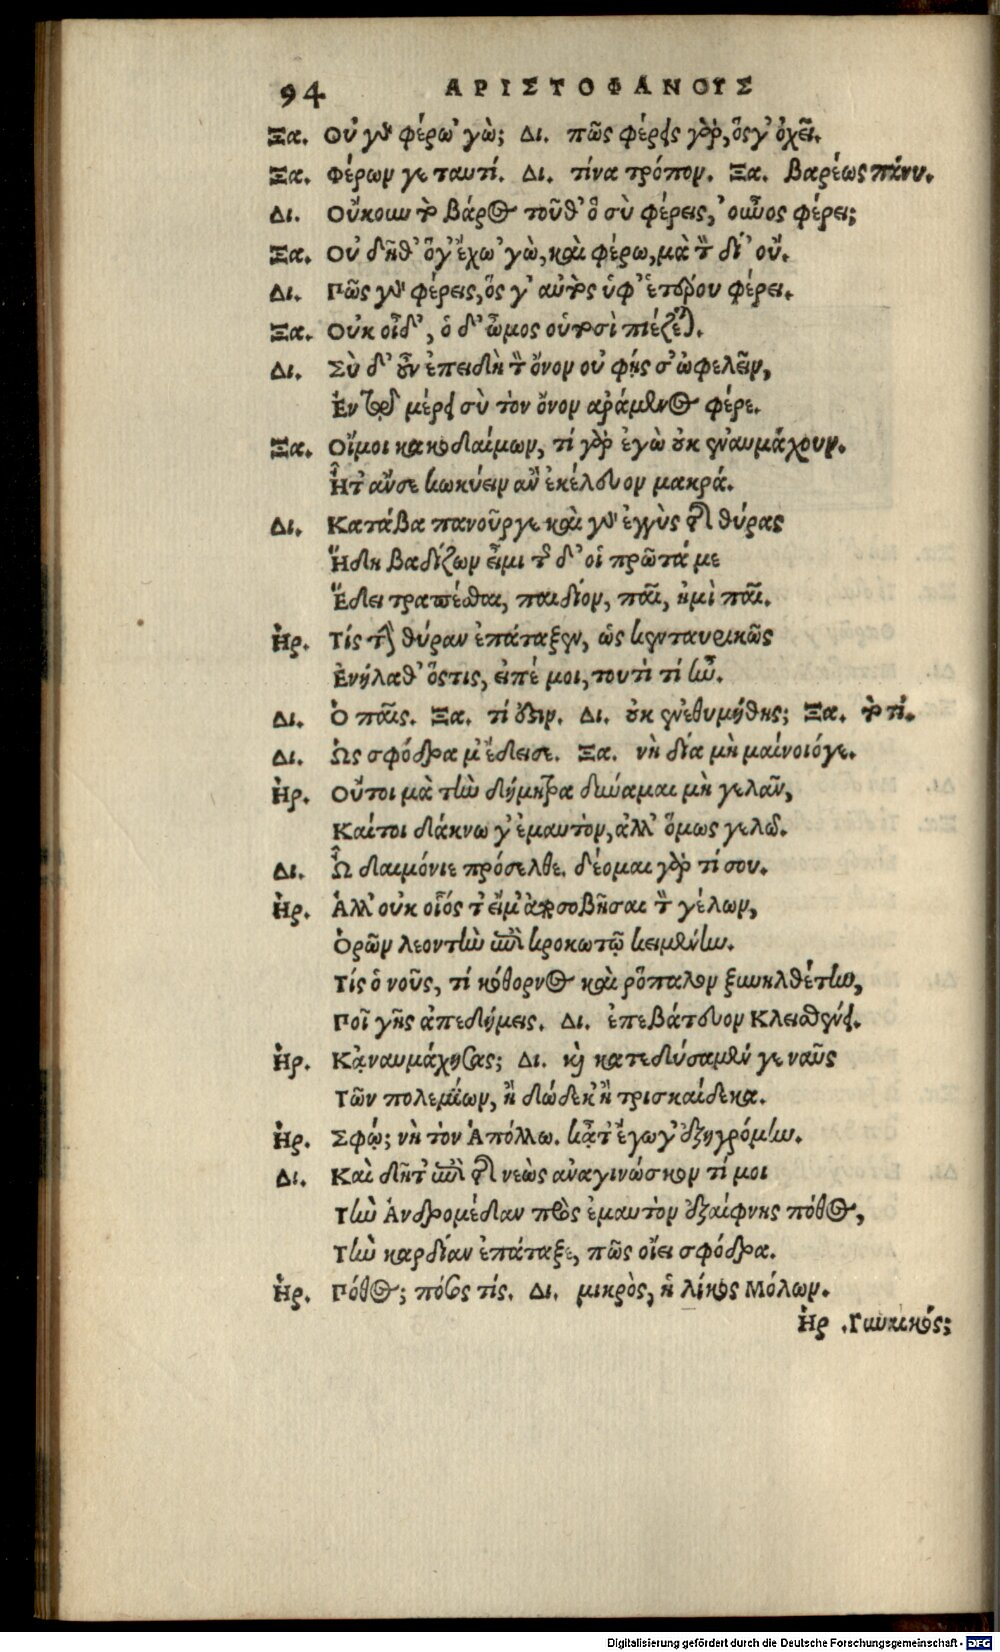 94 ΑΡΙΣΤΟΦΑΝΟΥΣ
Ξα. Οὐ γὰρ φέρω' γὼ; Δι. πῶς φέρεις γὰρ, ὅς γ' ὀχεῖ.
Ξα. Φέρων γε ταυτί. Δι. τίνα τρόπον. Ξα. βαρέως πάνυ.
Δι. Οὔκουν τὸ βάρος τοῦθ' ὃ σὺ φέρεις, 'οὖνος φέρει;
Ξα. Οὐ δῆθ' ὅγ' ἔχω' γὼ, καὶ φέρω, μὰ τὸν δί' οὔ.
Δι. Πῶς γὰρ φέρεις, ὅς γ' αὐτὸς ὑφ' ἑτέρου φέρει.
Ξα. Οὐκ οἶδ', ὁ δ' ὦμος οὑτοσὶ πιέζεται.
Δι. Σὺ δ' οὖν ἐπειδὴ τὸν ὄνον οὐ φῄς σ' ὠφελεῖν,
Ἐν τῷ μέρει σὺ τὸν ὄνον ἀράμενος φέρε.
Ξα. Οἴμοι κακοδαίμων, τί γὰρ ἐγὼ οὐκ ἐναυμάχουν.
Ἦτ' ἄν σε κωκύειν ἂν ἐκέλευον μακρά.
Δι. Κατάβα πανοῦργε καὶ γὰρ ἐγγὺς τῆς θύρας
Ἤδη βαδίζων εἶμι τῆσδ' οἷ πρῶτά με
Ἔδει τραπέσθαι, παιδίον, παῖ, ἠμὶ παῖ.
Ἡρ. Τίς τὴν θύραν ἐπάταξεν, ὡς κενταυρικῶς
Ἐνήλαθ' ὅστις, εἰπέ μοι, τουτὶ τί ἦν.
Δι. Ὁ παῖς. Ξα. τί ἔστιν. Δι. οὐκ ἐνεθυμήθης; Ξα. τὸ τί.
Δι. Ὡς σφόδρα μ' ἔδεισε. Ξα. νὴ δία μὴ μαίνοιόγε.
Ἡρ. Οὔτοι μὰ τὴν δήμητρα δύναμαι μὴ γελᾶν,
Καίτοι δάκνω γ' ἐμαυτὸν, ἀλλ' ὅμως γελῶ.
Δι. Ὦ δαιμόνιε πρόσελθε. δέομαι γὰρ τί σου.
Ἡρ. Ἀλλ' οὐκ οἷός τ' εἴμ' ἀποσοβῆσαι τὸν γέλων,
Ὁρῶν λεοντῆν ἐπὶ κροκωτῷ κειμένην.
Τίς ὁ νοῦς, τί κόθορνος καὶ ῥόπαλον ξυνηλθέτην,
Ποῖ γῆς ἀπεδήμεις. Δι. ἐπεβάτευον Κλεισθένει.
Ἡρ. Κᾀναυμάχησας; Δι. καὶ κατεδύσαμέν γε ναῦς
Τῶν πολεμίων, ἢ δώδεκ' ἢ τρισκαίδεκα.
Ἡρ. Σφώ; νὴ τὸν Ἀπόλλω. κᾆτ' ἔγωγ' ἐξηγρόμην.
Δι. Καὶ δῆτ' ἐπὶ τῆς νεὼς ἀναγινώσκον τί μοι
Τὴν Ἀνδρομέδαν πρὸς ἐμαυτὸν ἐξαίφνης πόθος,
Τὴν καρδίαν ἐπάταξε, πῶς οἴει σφόδρα.
Ἡρ. Πόθος; πόσος τίς. Δι. μικρὸς, ἡλίκος Μόλων.
Ἡρ .Γυναικός;
Digitalisierung gefördert durch die Deutsche Forschungsgemeinschaft - DFG